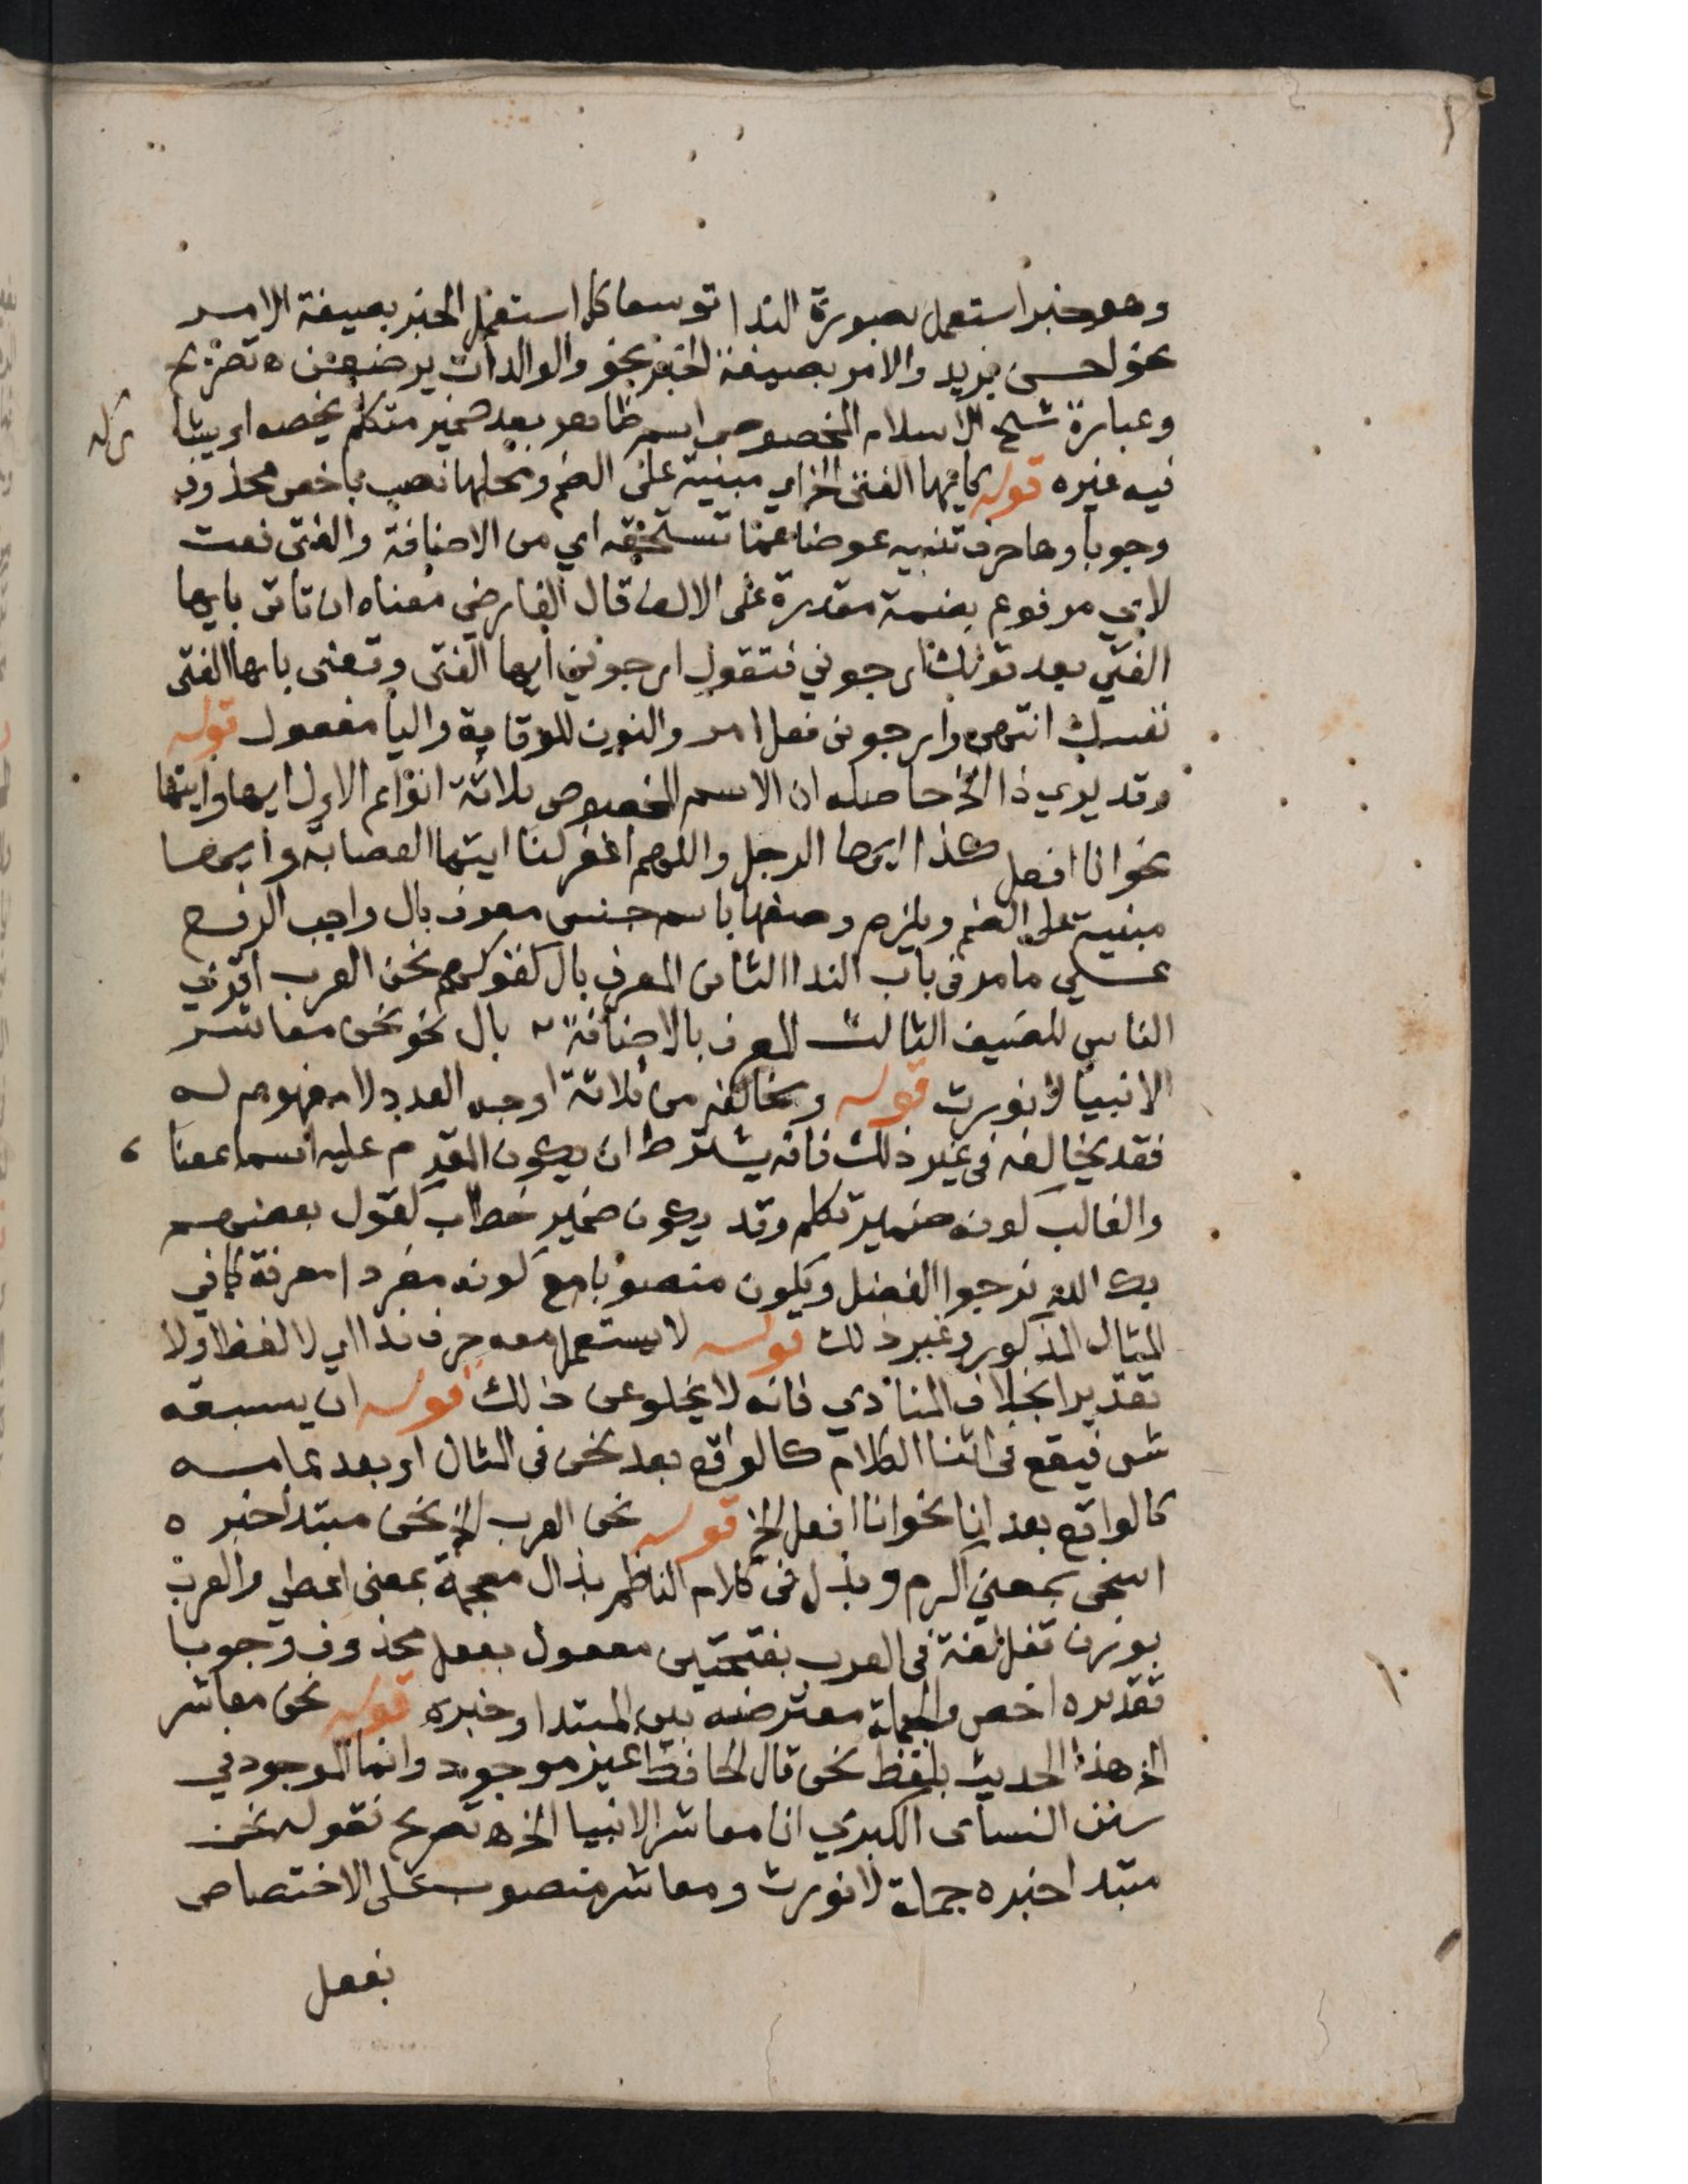 وهو خبر استعمل بصورة الندا توسعا كما استعمل الخبر بصيغة الامر
نحو احسن بزيد والامر بصيغة الخبر نحو والوالدات يرضعن ه تصريح
وعبارة شيخ الاسلام المخصوص اسم ظاهر بعد ضمير متكلم يخصه او يشا
ركه
فيه غيره قوله كايها الفتى الخ اي مبنية على الضم ومحلها نصب باخص محذوف
وجوبا وها حرف تنبيه عوضا عما تستحقه اي من الاضافة والفتى نعت
لاي مرفوع بضمة مقدرة على الالف قال الفارضي معناه ان تاتى بايها
الفتى بعد قولك ارجوني فتقول ارجوني ايها الفتى وتعنى بايها الفتى
نفسك انتهى وارجونى فعل امر والنون للوقاية واليا مفعول قوله
وقد يرى ذا الخ حاصله ان الاسم المخصوص ثلاثة انواع الاول ايها وايتها
نحو انا افعل كذا ايها الرجل واللهم اغفر لنا ايتها العصابة وايها
مبنية على الضم ويلزم وصفها باسم جنس معرف بال واجب الرفع
على ما مر فى باب الندا الثانى المعرف بال كقولهم نحن العرب اقرى
الناس للضيف الثالث المعرف بالاضافة بال نحو نحن معاشر
الانبيا لا نورث قوله ويخالفه من ثلاثة اوجه العدد لا مفهوم له
فقد يخالفه فى غير ذلك فانه يشترط ان يكون المقدم عليه اسما بمعنا
والغالب كونه ضمير تكلم وقد يكون ضمير خطاب كقول بعضهم
بك الله نرجوا الفضل ويكون منصوبا مع كونه مفردا معرفة كما في
المثال المذكور وغير ذلك قوله لا يستعمل معه حرف ندا اي لا لفظا ولا
تقديرا بخلاف المنادي فانه لا يخلو عن ذلك قوله ان يسبقه
شى فيقع فى اثنا الكلام كالواقع بعد نحن فى المثال او بعد تمامه
كالواقع بعد انا نحو انا افعل الخ قوله نحن العرب الخ نحن مبتدا خبره
اسخى بمعنى اكرم وبذل فى كلام الناظم بذال معجمة بمعنى اعطى والعرب
بوزن قفل لغة فى العرب بفتحتين معمول بفعل محذوف وجوبا
تقديره اخص والجملة معترضه بين المبتدا وخبره قوله نحن معاشر
الخ هذا الحديث بلفظ نحن قال الحافظ غير موجود وانما الموجود في
سنن النسائى الكبرى انا معاشر الانبيا الخ ه تصريح فقوله نحن
مبتدا خبره جملة لا نورث ومعاشر منصوب على الاختصاص
بفعل